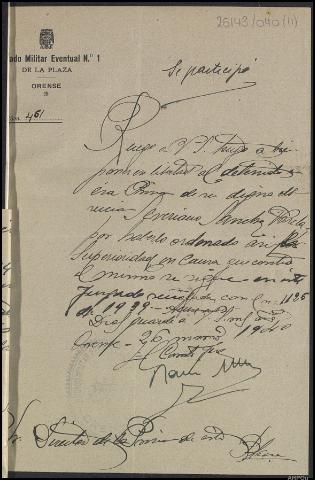 26143/040 (11)
ado Militar Eventual N.º 1
DE LA PLAZA
ORENSE
461
Se participó
Ruego a V. S. tenga a bien
poner en libertad al detenido
en esa Prisión de su digna di
rección Severiano Sánchez Varela
por haberlo ordenado así la
Superioridad en Causa que contra
el mismo se sigue en este
Juzgado señalada con el nº 1125
de 1939
Dios guarde a V. S. m. años
Orense - 26 marzo 1940
El Comte Juez
Sr. Director de la Prisión de esta Plaza